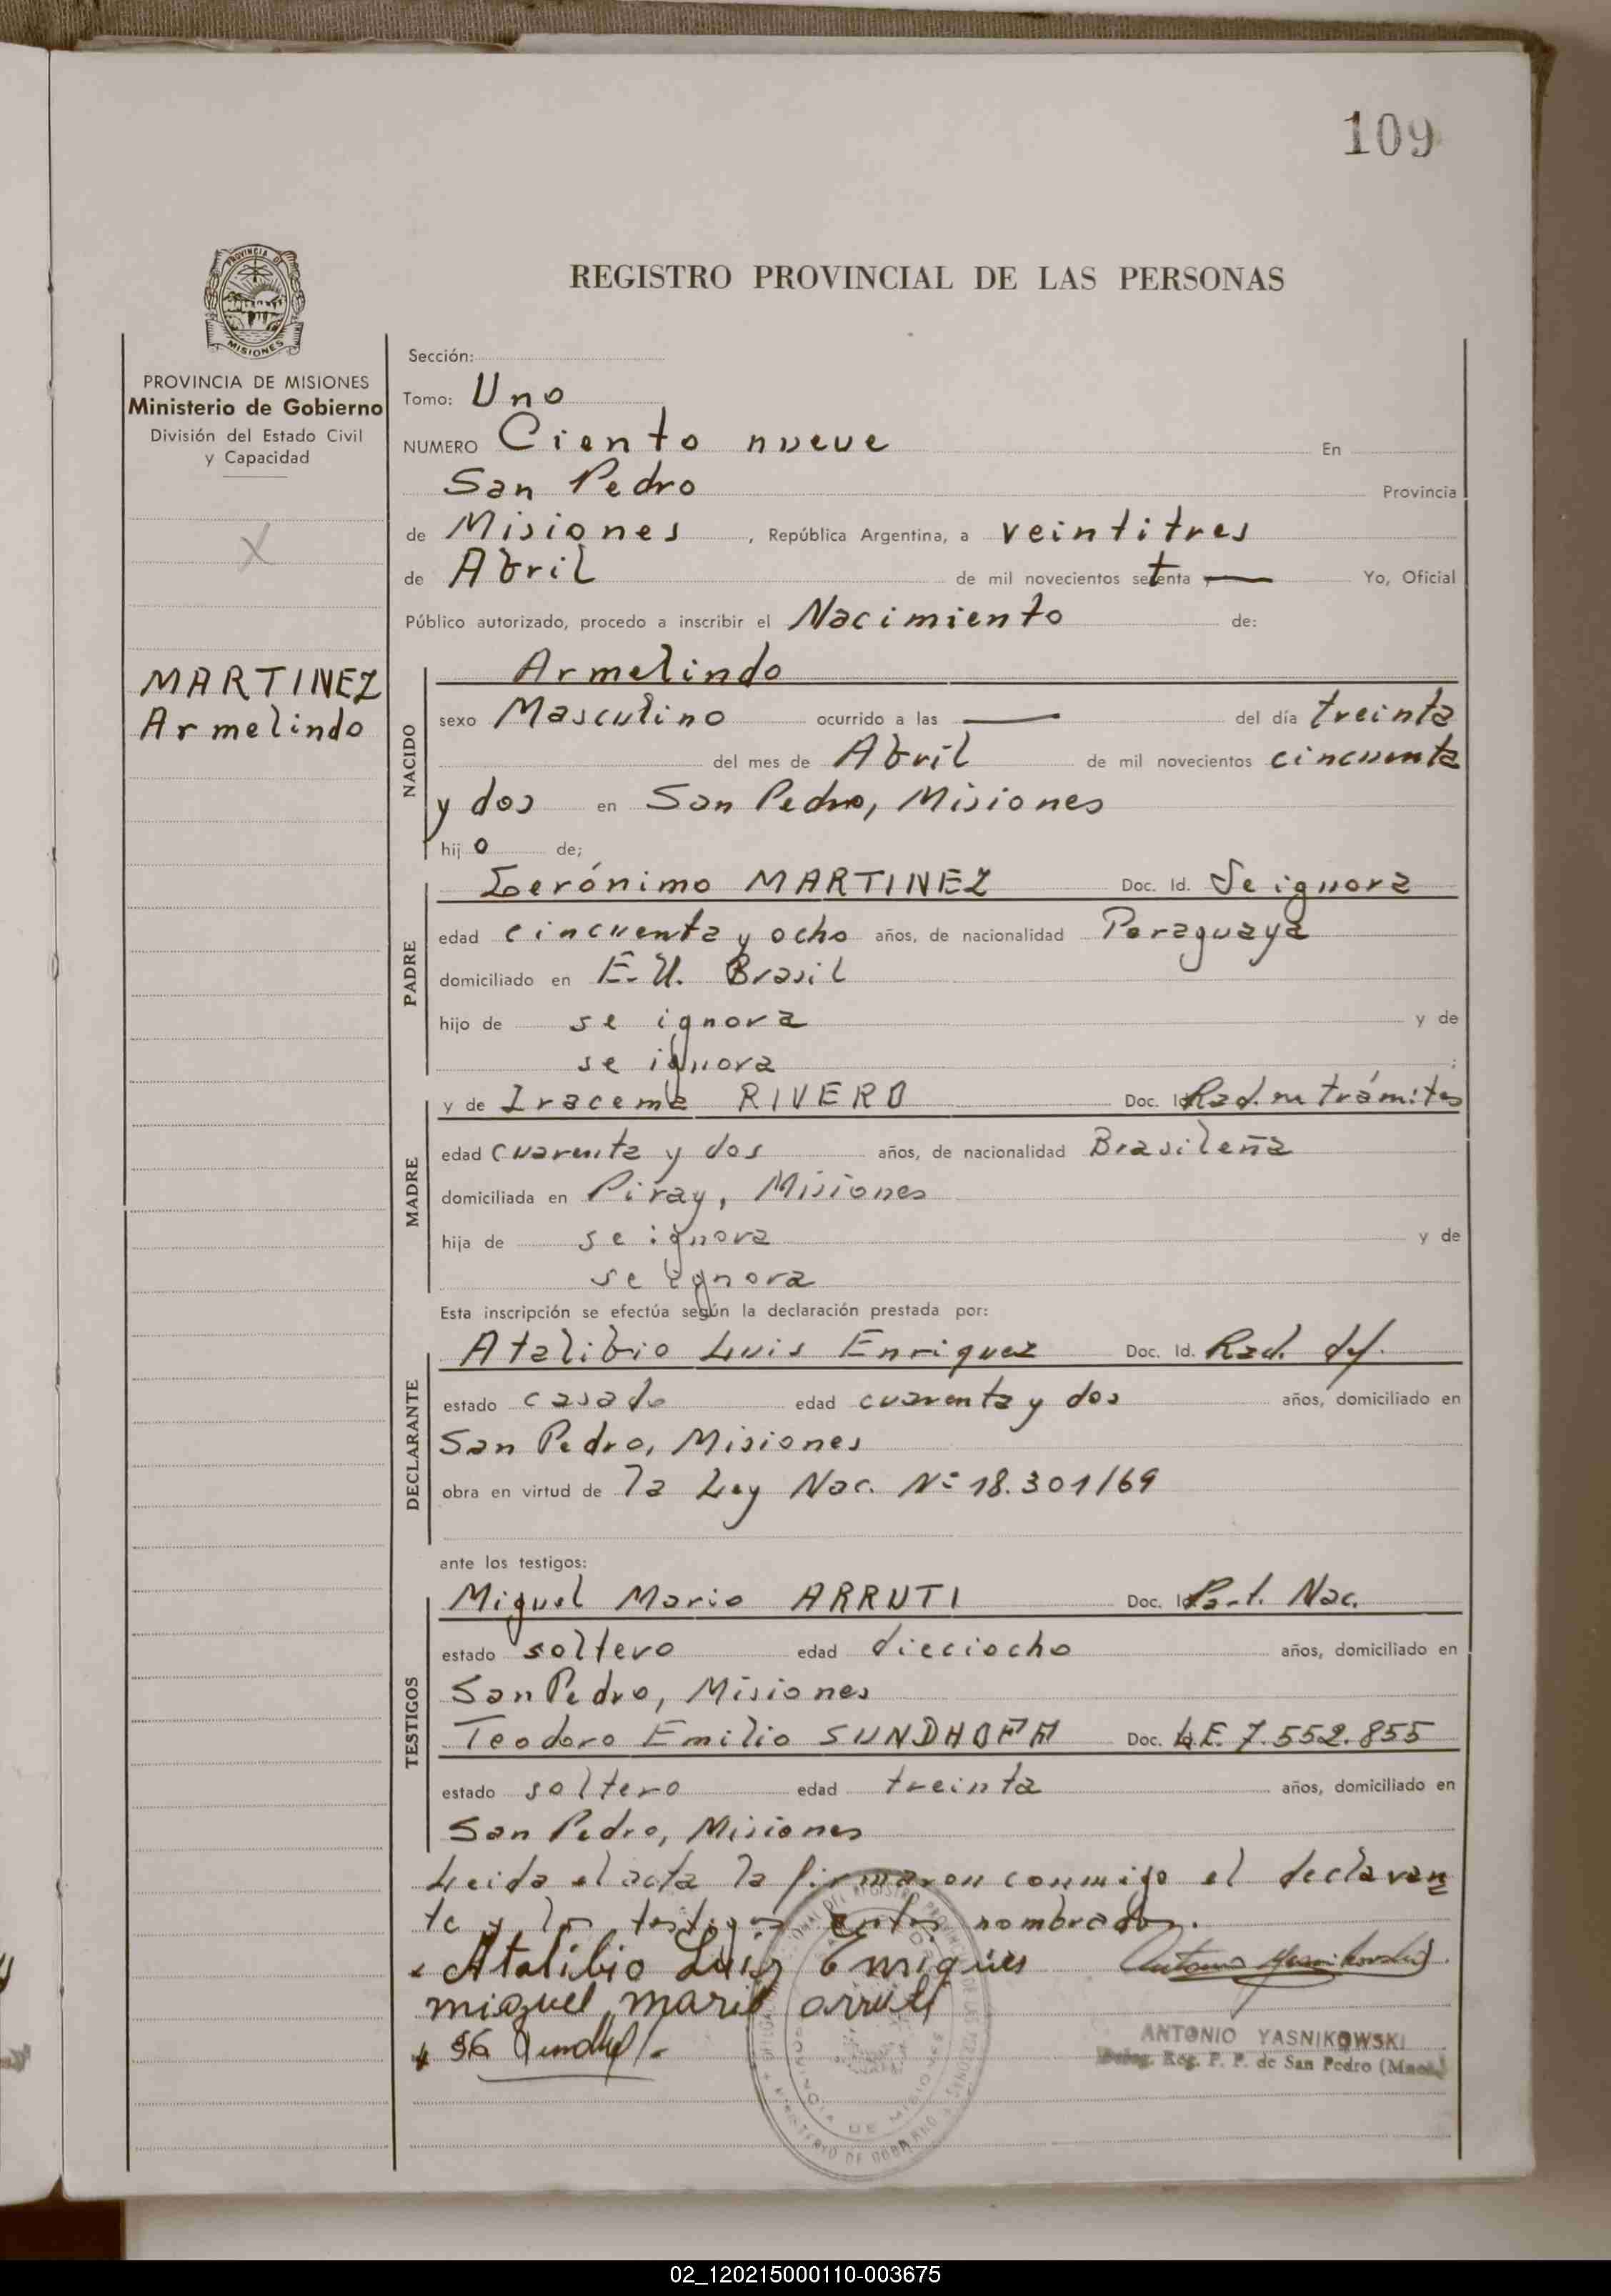 109
PROVINCIA DE
MISIONES
REGISTRO PROVINCIAL DE LAS PERSONAS
PROVINCIA DE MISIONES
Ministerio de Gobierno
División del Estado Civil
y Capacidad
X
MARTINEZ
Armelindo
Sección:
Tomo: Uno
NUMERO Ciento nueve En
San Pedro Provincia
de Misiones, República Argentina, a veintitres
de Abril de mil novecientos setenta y — Yo, Oficial
Público autorizado, procedo a inscribir el Nacimiento de:
NACIDO
Armelindo
sexo Masculino ocurrido a las — del día treinta
del mes de Abril de mil novecientos cincuenta
y dos en San Pedro, Misiones
hij o de;
PADRE
Gerónimo MARTINEZ Doc. Id. Se ignora
edad cincuenta y ocho años, de nacionalidad Paraguaya
domiciliado en E.U. Brasil
hijo de se ignora y de
se ignora ;
MADRE
y de Iracema RIVERO Doc. Id. Rad. en trámites
edad cuarenta y dos años, de nacionalidad Brasileña
domiciliada en Piray, Misiones
hija de se ignora y de
se ignora
Esta inscripción se efectúa según la declaración prestada por:
DECLARANTE
Atalibio Luis Enriquez Doc. Id. Rad. def.
estado casado edad cuarenta y dos años, domiciliado en
San Pedro, Misiones
obra en virtud de la Ley Nac. Nº 18.301/69
ante los testigos:
TESTIGOS
Miguel Mario ARRUTI Doc. Id. Part. Nac.
estado soltero edad dieciocho años, domiciliado en
San Pedro, Misiones
Teodoro Emilio SUNDHOFA Doc. L.E. 7.552.855
estado soltero edad treinta años, domiciliado en
San Pedro, Misiones
Leida el acta la firmaron conmigo el declaran
te y los testigos antes nombrados.
Atalibio Luiz Enriques
miguel mario arruti
ANTONIO YASNIKOWSKI
Deleg. Reg. P. P. de San Pedro (Mnes.)
PROVINCIA DE MISIONES
MINISTERIO DE GOBIERNO
02_120215000110-003675